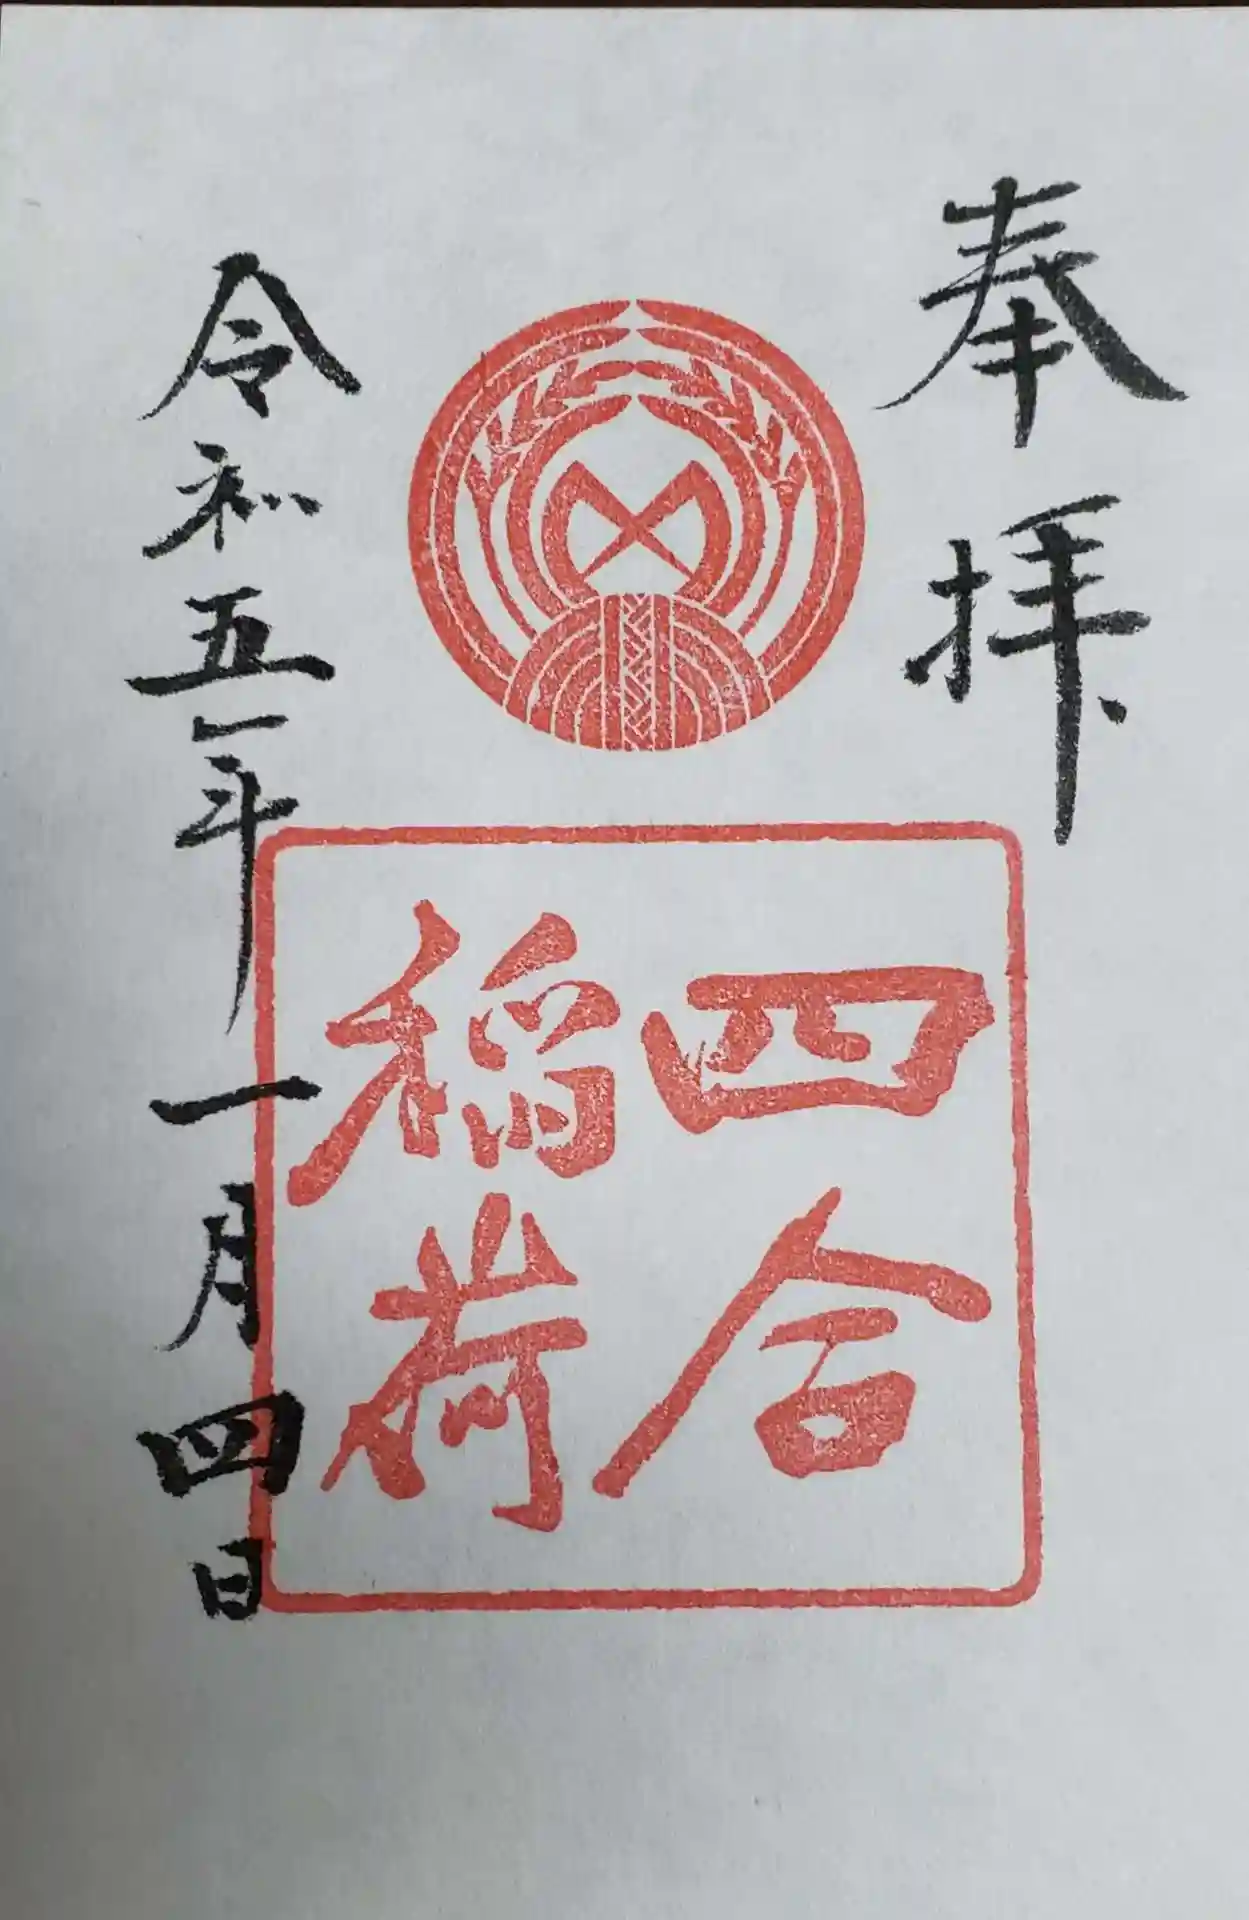 奉拝
四合
稲荷
令和五年一月四日